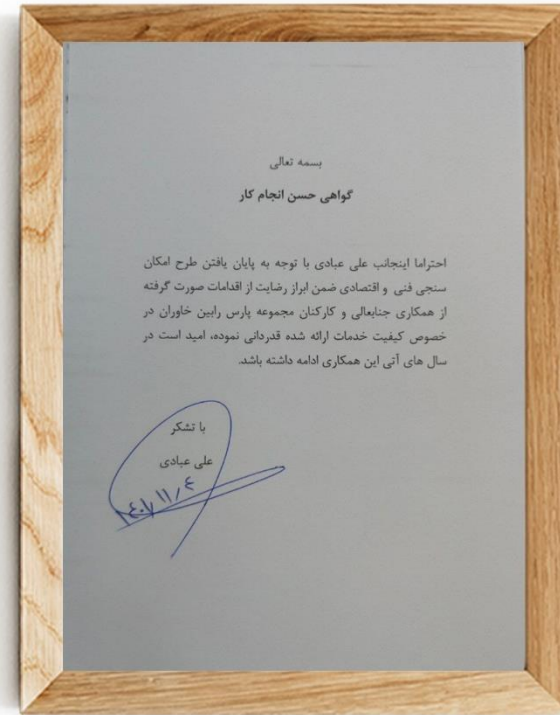 بسمه تعالی
گواهی حسن انجام کار
احتراما اینجانب علی عبادی با توجه به پایان یافتن طرح امکان
سنجی فنی و اقتصادی ضمن ابراز رضایت از اقدامات صورت گرفته
از همکاری جنابعالی و کارکنان مجموعه پارس رابین خاوران در
خصوص کیفیت خدمات ارائه شده قدردانی نموده، امید است در
سال های آتی این همکاری ادامه داشته باشد.
با تشکر
علی عبادی